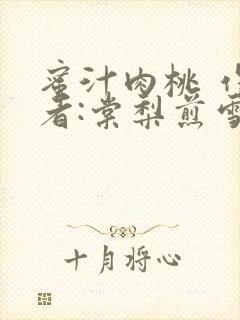 蜜汁肉桃 作
者:棠梨煎雪
十月将心